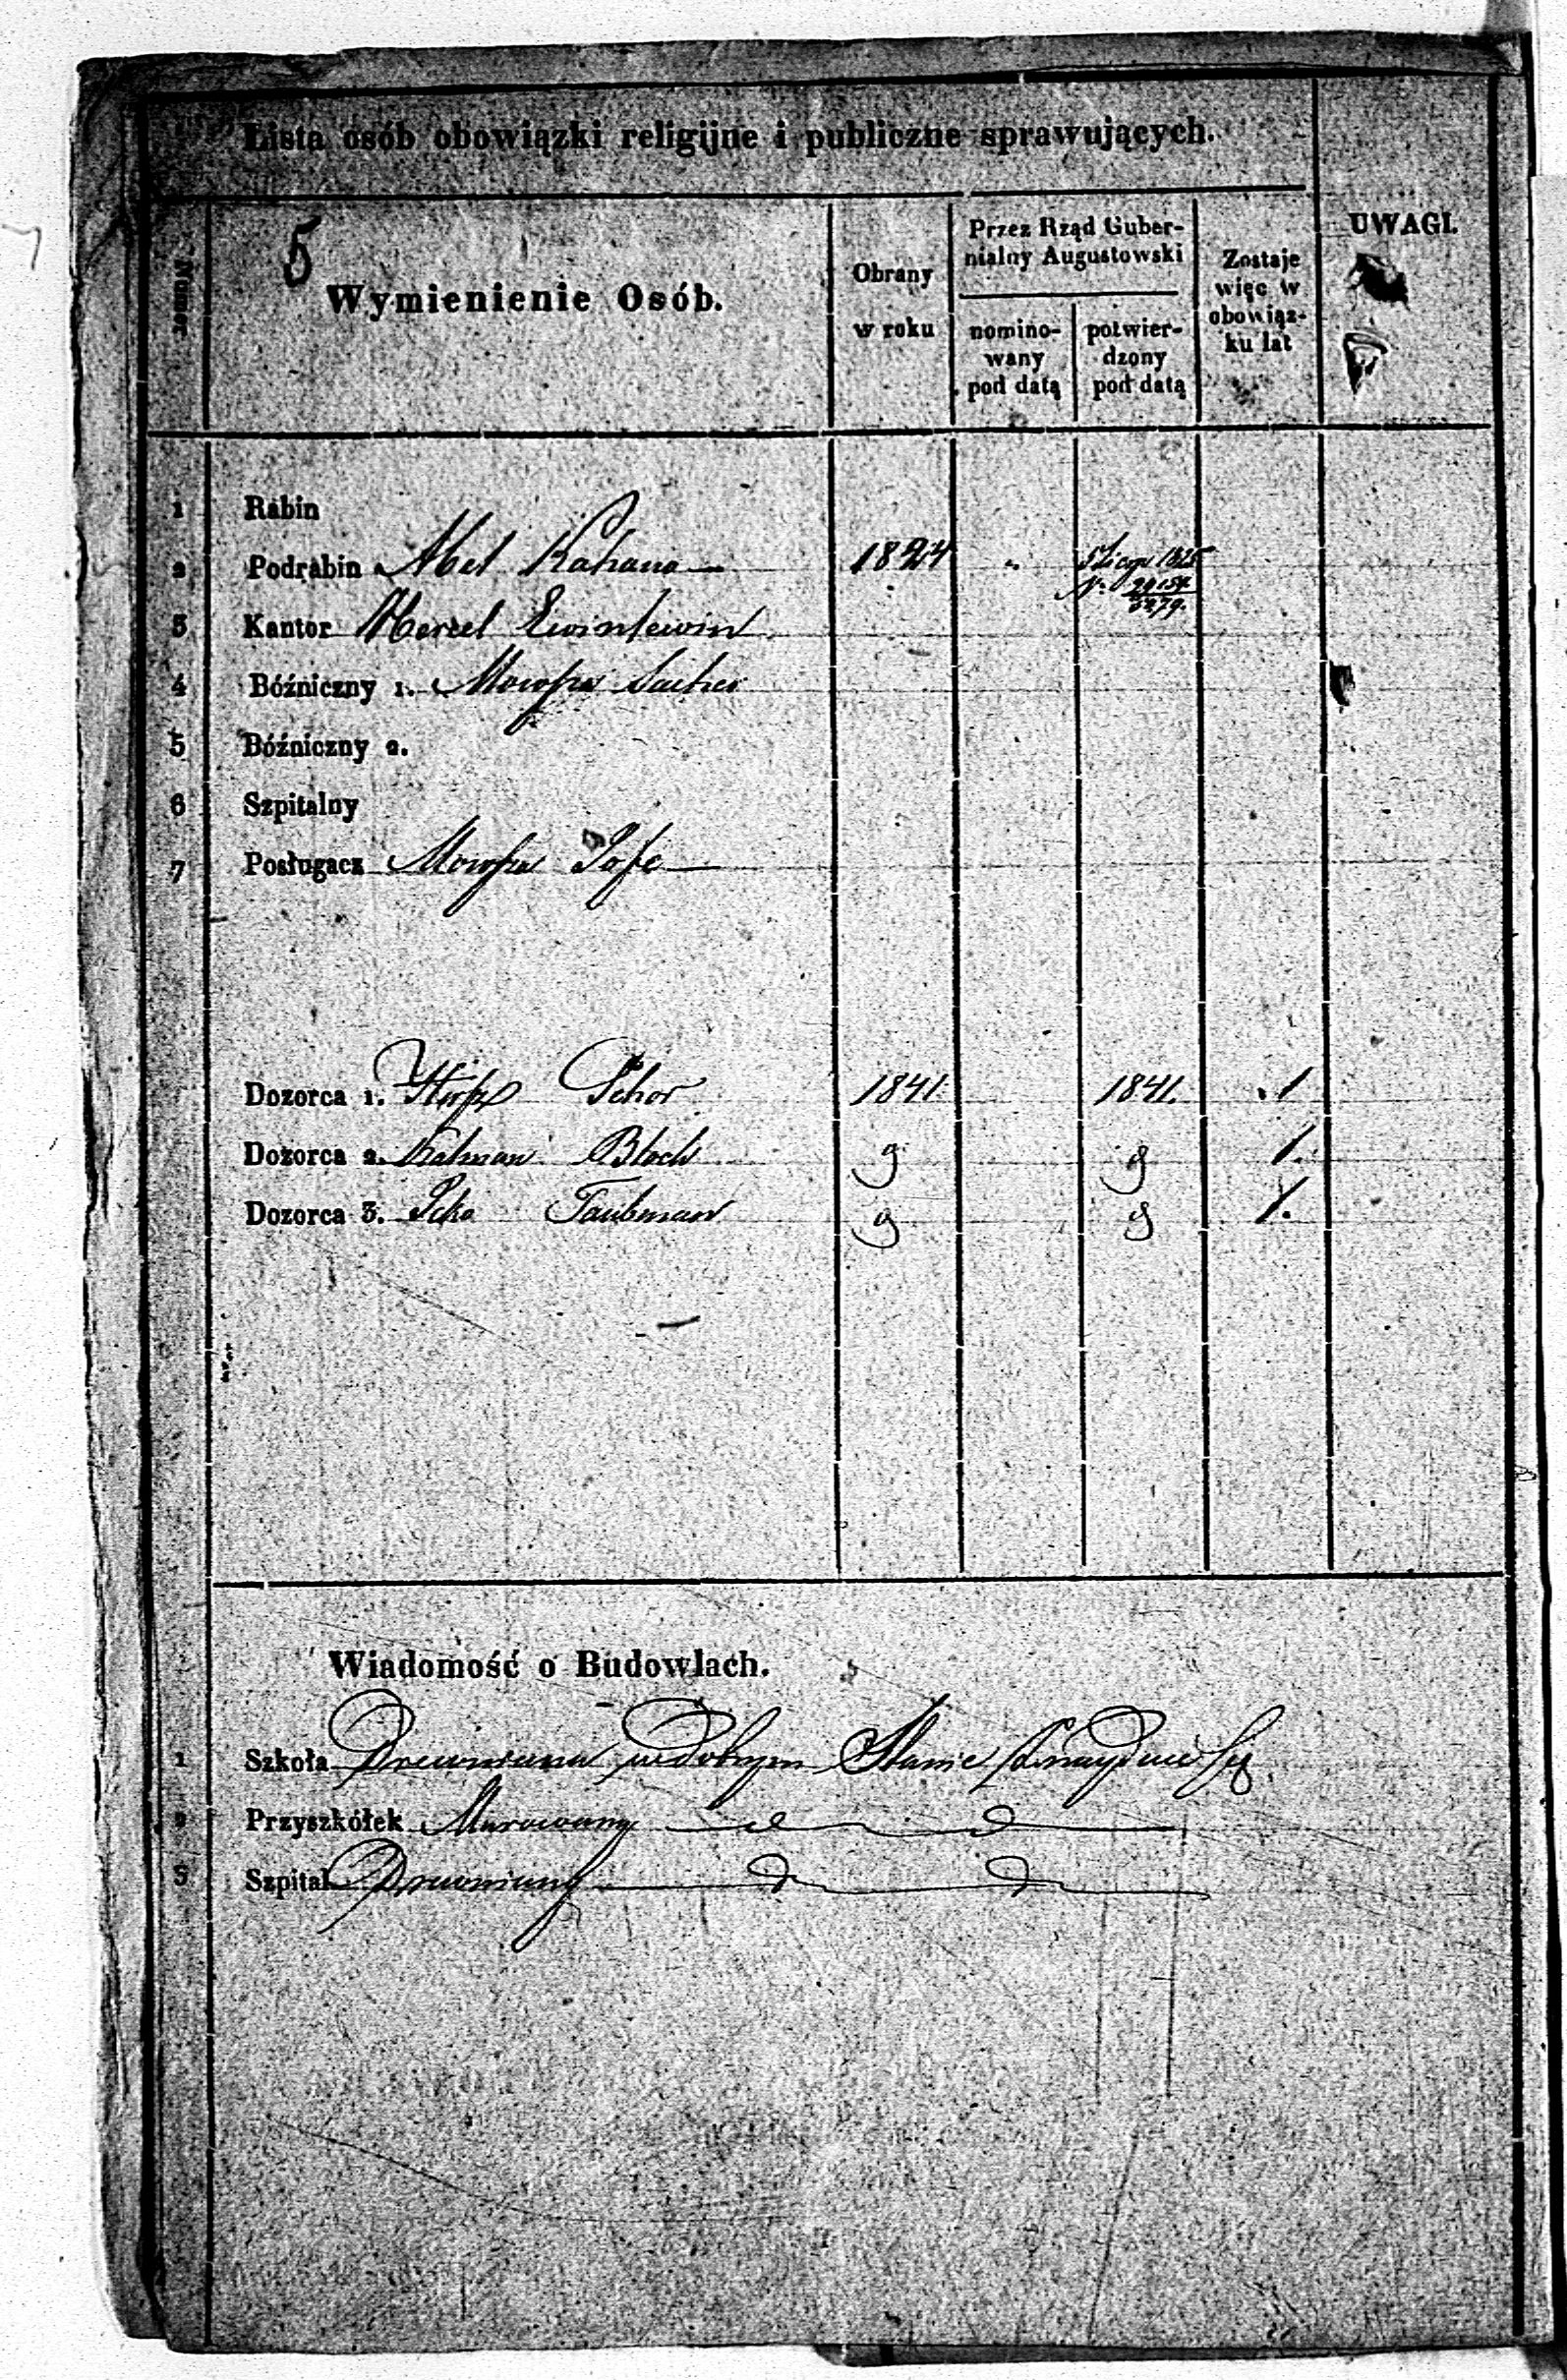 Lista osób obowiązki religijne i publiczne sprawujących.
Numer
5
Wymienienie Osób.
Obrany
w roku
Przez Rząd Guber-
nialny Augustowski
nomino-
wany
pod datą
potwier-
dzony
pod datą
Zostaje
więc w
obowiąz-
ku lat
UWAGI.
1 Rabin
2 Podrabin Abel Kahana 1824 " 1825
N.
3 Kantor Hercel
4 Bóźniczny 1. Mowsza
5 Bóźniczny 2.
6 Szpitalny
7 Posługacz Mowsza
Dozorca 1. Schor 1841. 1841. 1
Dozorca 2. Kalman Bloch 1.
Dozorca 3. Icko Taubman 1.
Wiadomość o Budowlach.
1 Szkoła Drewniana w dobrym Stanie znayduie się
2 Przyszkółek Murowany
3 Szpital Drewniany